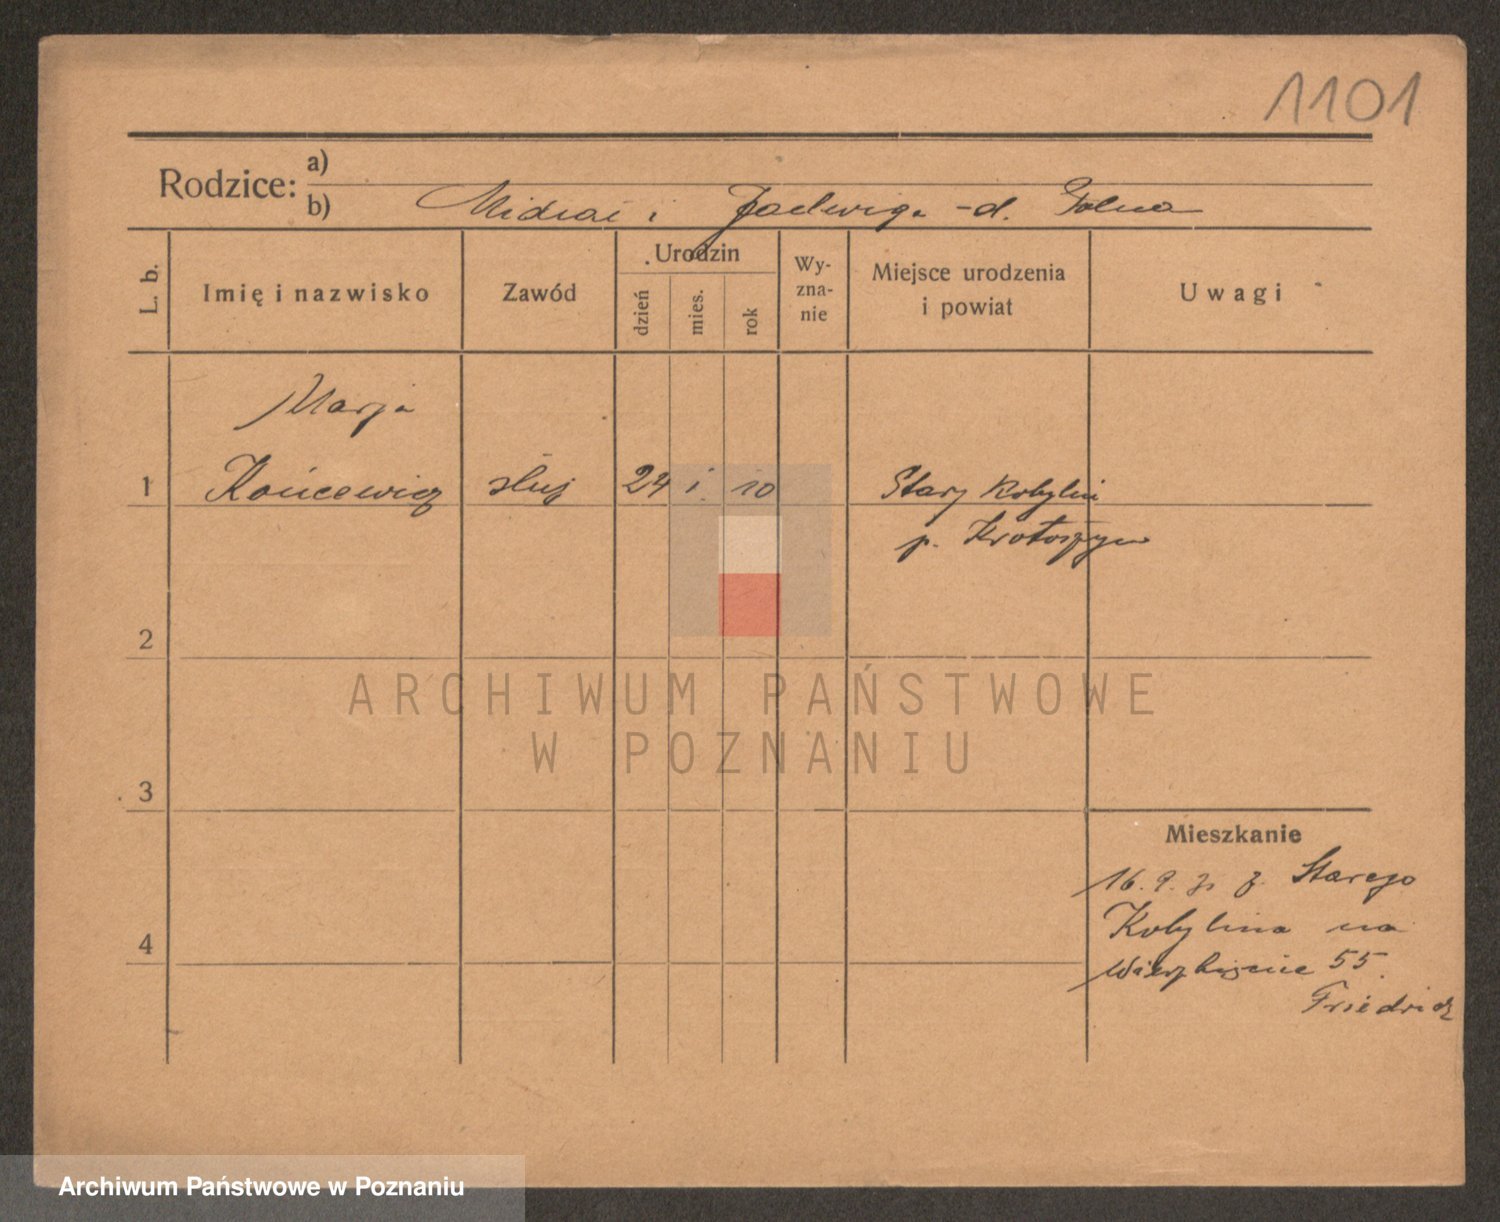 1101
Rodzice:
a)
b) i Jadwiga -d.
L. b.
Imię i nazwisko
Zawód
Urodzin
dzień
mies.
rok
Wy-
zna-
nie
Miejsce urodzenia
i powiat
Uwagi
Marja
1 Końcewicz służ 24 i. 10 Stary Kobylin
p. Krotoszyn
2
ARCHIWUM PAŃSTWOWE
W POZNANIU
3
Mieszkanie
16. 9. z. Starego
4 Kobylina na
55.
Friedrich
Archiwum Państwowe w Poznaniu